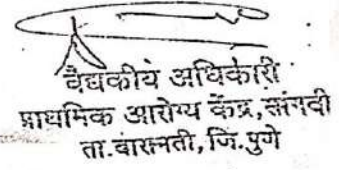 वैद्यकीय अधिकारी
प्राथमिक आरोग्य केंद्र, सांगवी
ता.बारामती, जि.पुणे